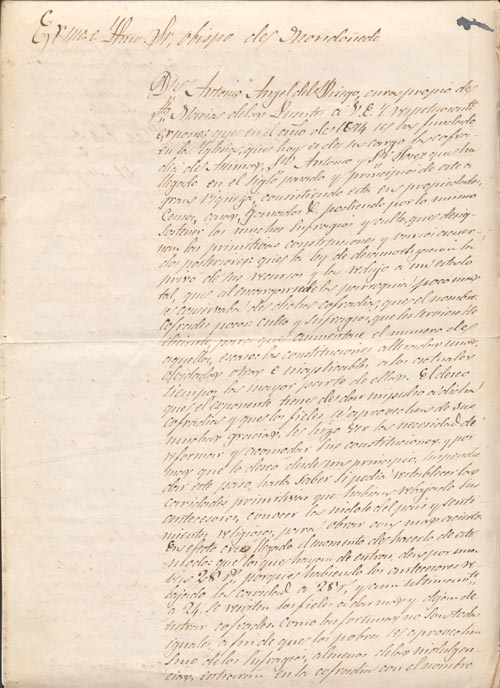 Exmo. e Ilmo. Sr. obispo de Mondoñedo
Dn. Antonio Angel del Riego, cura propio de
Sta. Maria de los Puentes á V.E.I. respetuosamte
espone: que en el año de 1674 se ha fundado
en la Iglesia, que hoy es de su cargo la cofra-
dia de Animas, Sn. Antonio y Sn. que ha
llegado en el siglo pasado y principios de este á
gran riqueza, consistiendo esta en propiedades,
Censos, casas, ganados &. pudiendo por lo mismo
sostener los muchos sufragios y culto, que desig-
nan las primitivas constituciones y
das posteriores: que la ley de desamortizacion la
privó de sus recursos y la redujo á un estado
tal, que al encargarme de la parroquia poco mas
se conservaba de dicha cofradia, que el nombre.
cofrades pocos: culto y sufragios, que
para que aumentase el numero de
aquellos, escaso: las constituciones alteradas unas,
olvidadas otras é inaplicables á los actuales
tiempos la mayor parte de ellas. El deseo
que el esponente tiene de dar impulso á dicha
cofradia y que los fieles se aprovechen de sus
muchas gracias, les hizo ver la necesidad de
reformar y acomodar sus constituciones, y por
mas que lo deseó desde un principio, suspendió
dar este paso, hasta saber si podia restablecer las
caridades primitivas que habian rebajado sus
antecesores, conocer la indole del pais y senti-
mientos religiosos, para obrar con mas acierto.
En efecto es llegado el momento de hacerlo
que los que hayan de entrar, den por una
vez 28 rs. porque habiendo los antecesores re-
bajado la caridad á 28 rs, y aun ultimamte.
á 24, se resisten los fieles á dar mas y dejan de
entrar cofrades. Como las fortunas no son todas
iguales, á fin de que los pobres se aprovechen
sino de los sufragios, al menos de las indulgen-
cias, entraran en la cofradia con el nombre